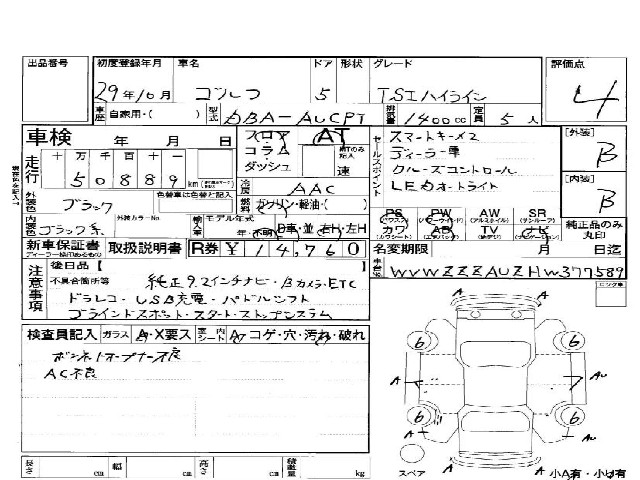 出品番号 初度登録年月 車名 ドア 形状 グレード 評価点
29年10月 ゴルフ 5 TSIハイライン 4
車歴 自家用・( ) 型式 DBA-AUCPT 排気量 1400cc 定員 5人
車検 年 月 日 フロア AT セールスポイント スマートキー×2 [外装]
走行 十 万 千 百 十 一 コラム ディーラー車 B
50889 km ダッシュ 速 クルーズコントロール
外装色 ブラック 色替車は色替と記入 冷房 AAC LEDオートライト [内装]
燃料 ガソリン・軽油・( ) B
内装色 ブラック系 外装カラーNo 輸入車 モデル年式 PS PW AW SR
年・不明 D車・並 右H・左H カワ AB TV ナビ 純正品のみ丸印
新車保証書 取扱説明書 R券 ¥14,760 名変期限 月 日迄
注意事項 後日品【 】 車台No WVWZZZAUZHW377589
不具合箇所等 純正9.2インチナビ・Bカメラ・ETC
ドラレコ・USB充電・パドルシフト
ブラインドスポット・スタートストップシステム
検査員記入 ガラス A・X要ス 室内シート A・コゲ・穴・汚れ・破れ
ボンネットオープナー不良
AC不良
A
6 6
A A AU
6 6
A A
スペア A 小A有・小U有
長さ cm 幅 cm 高さ cm 積載量 kg